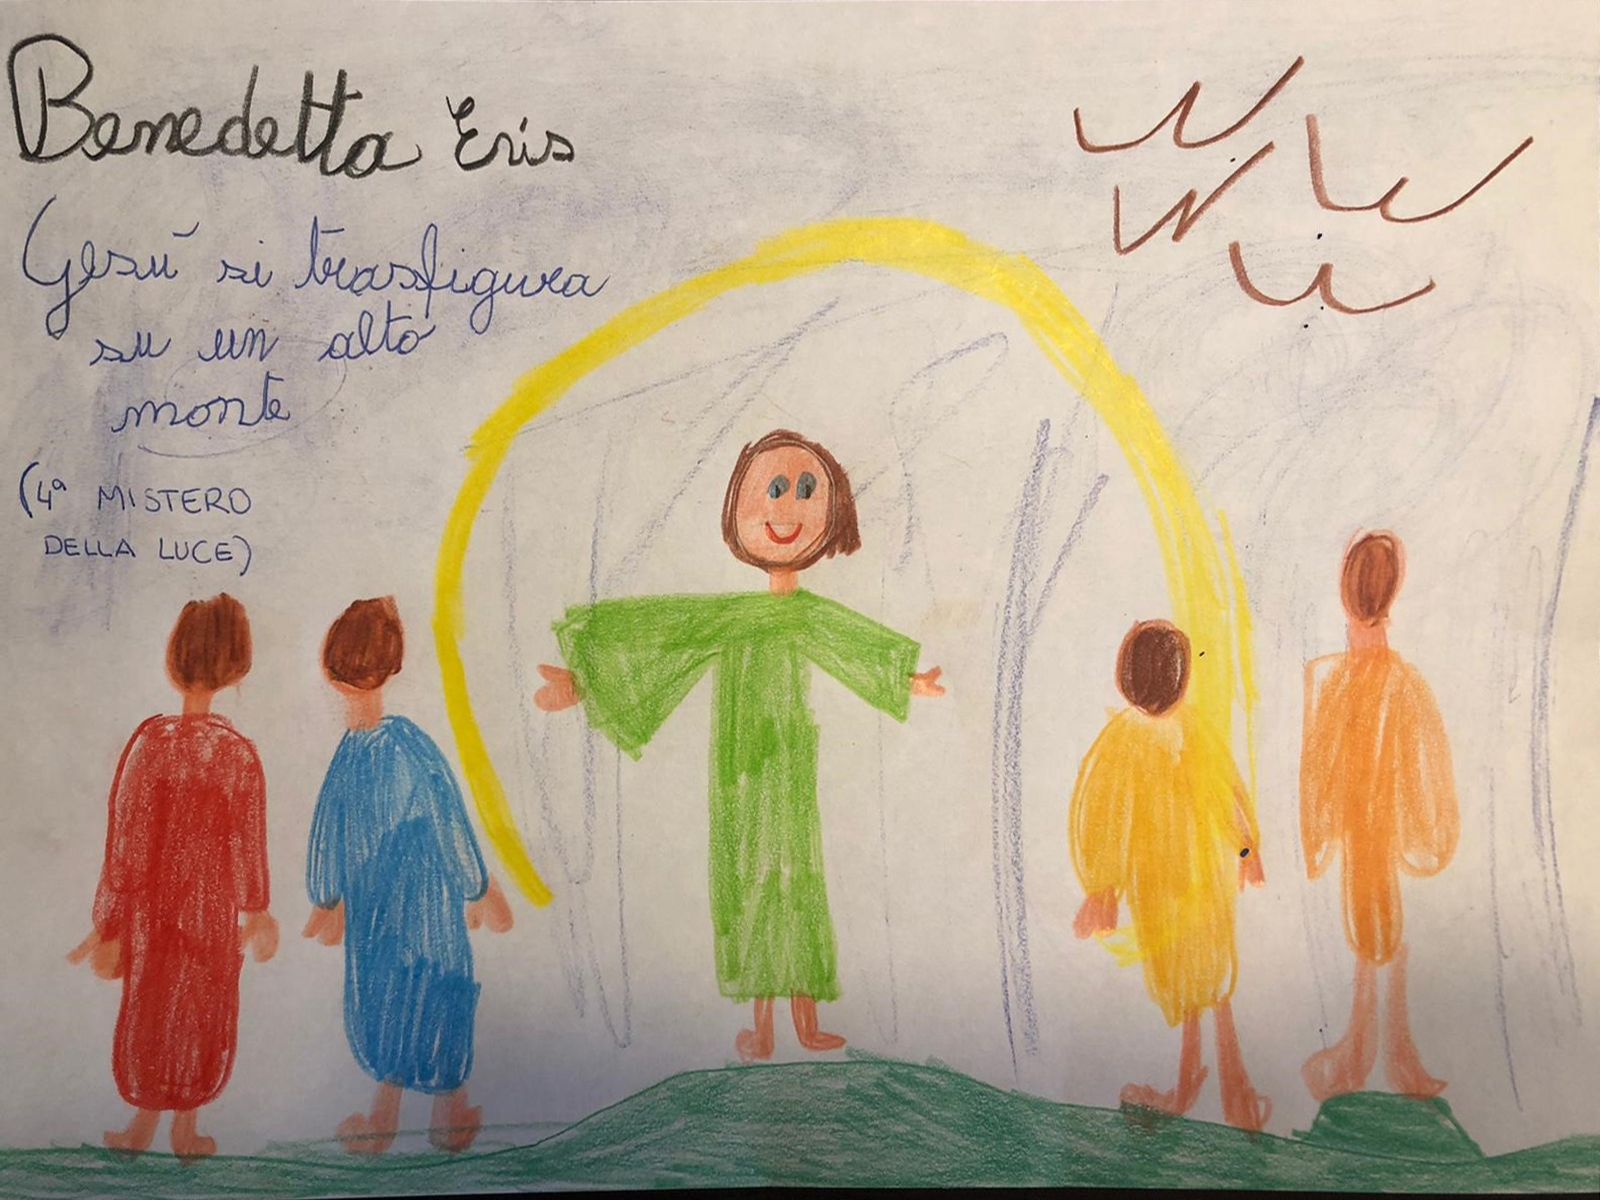 Benedetta Eris
Gesù si trasfigura
su un alto
monte
(4ª MISTERO
DELLA LUCE)